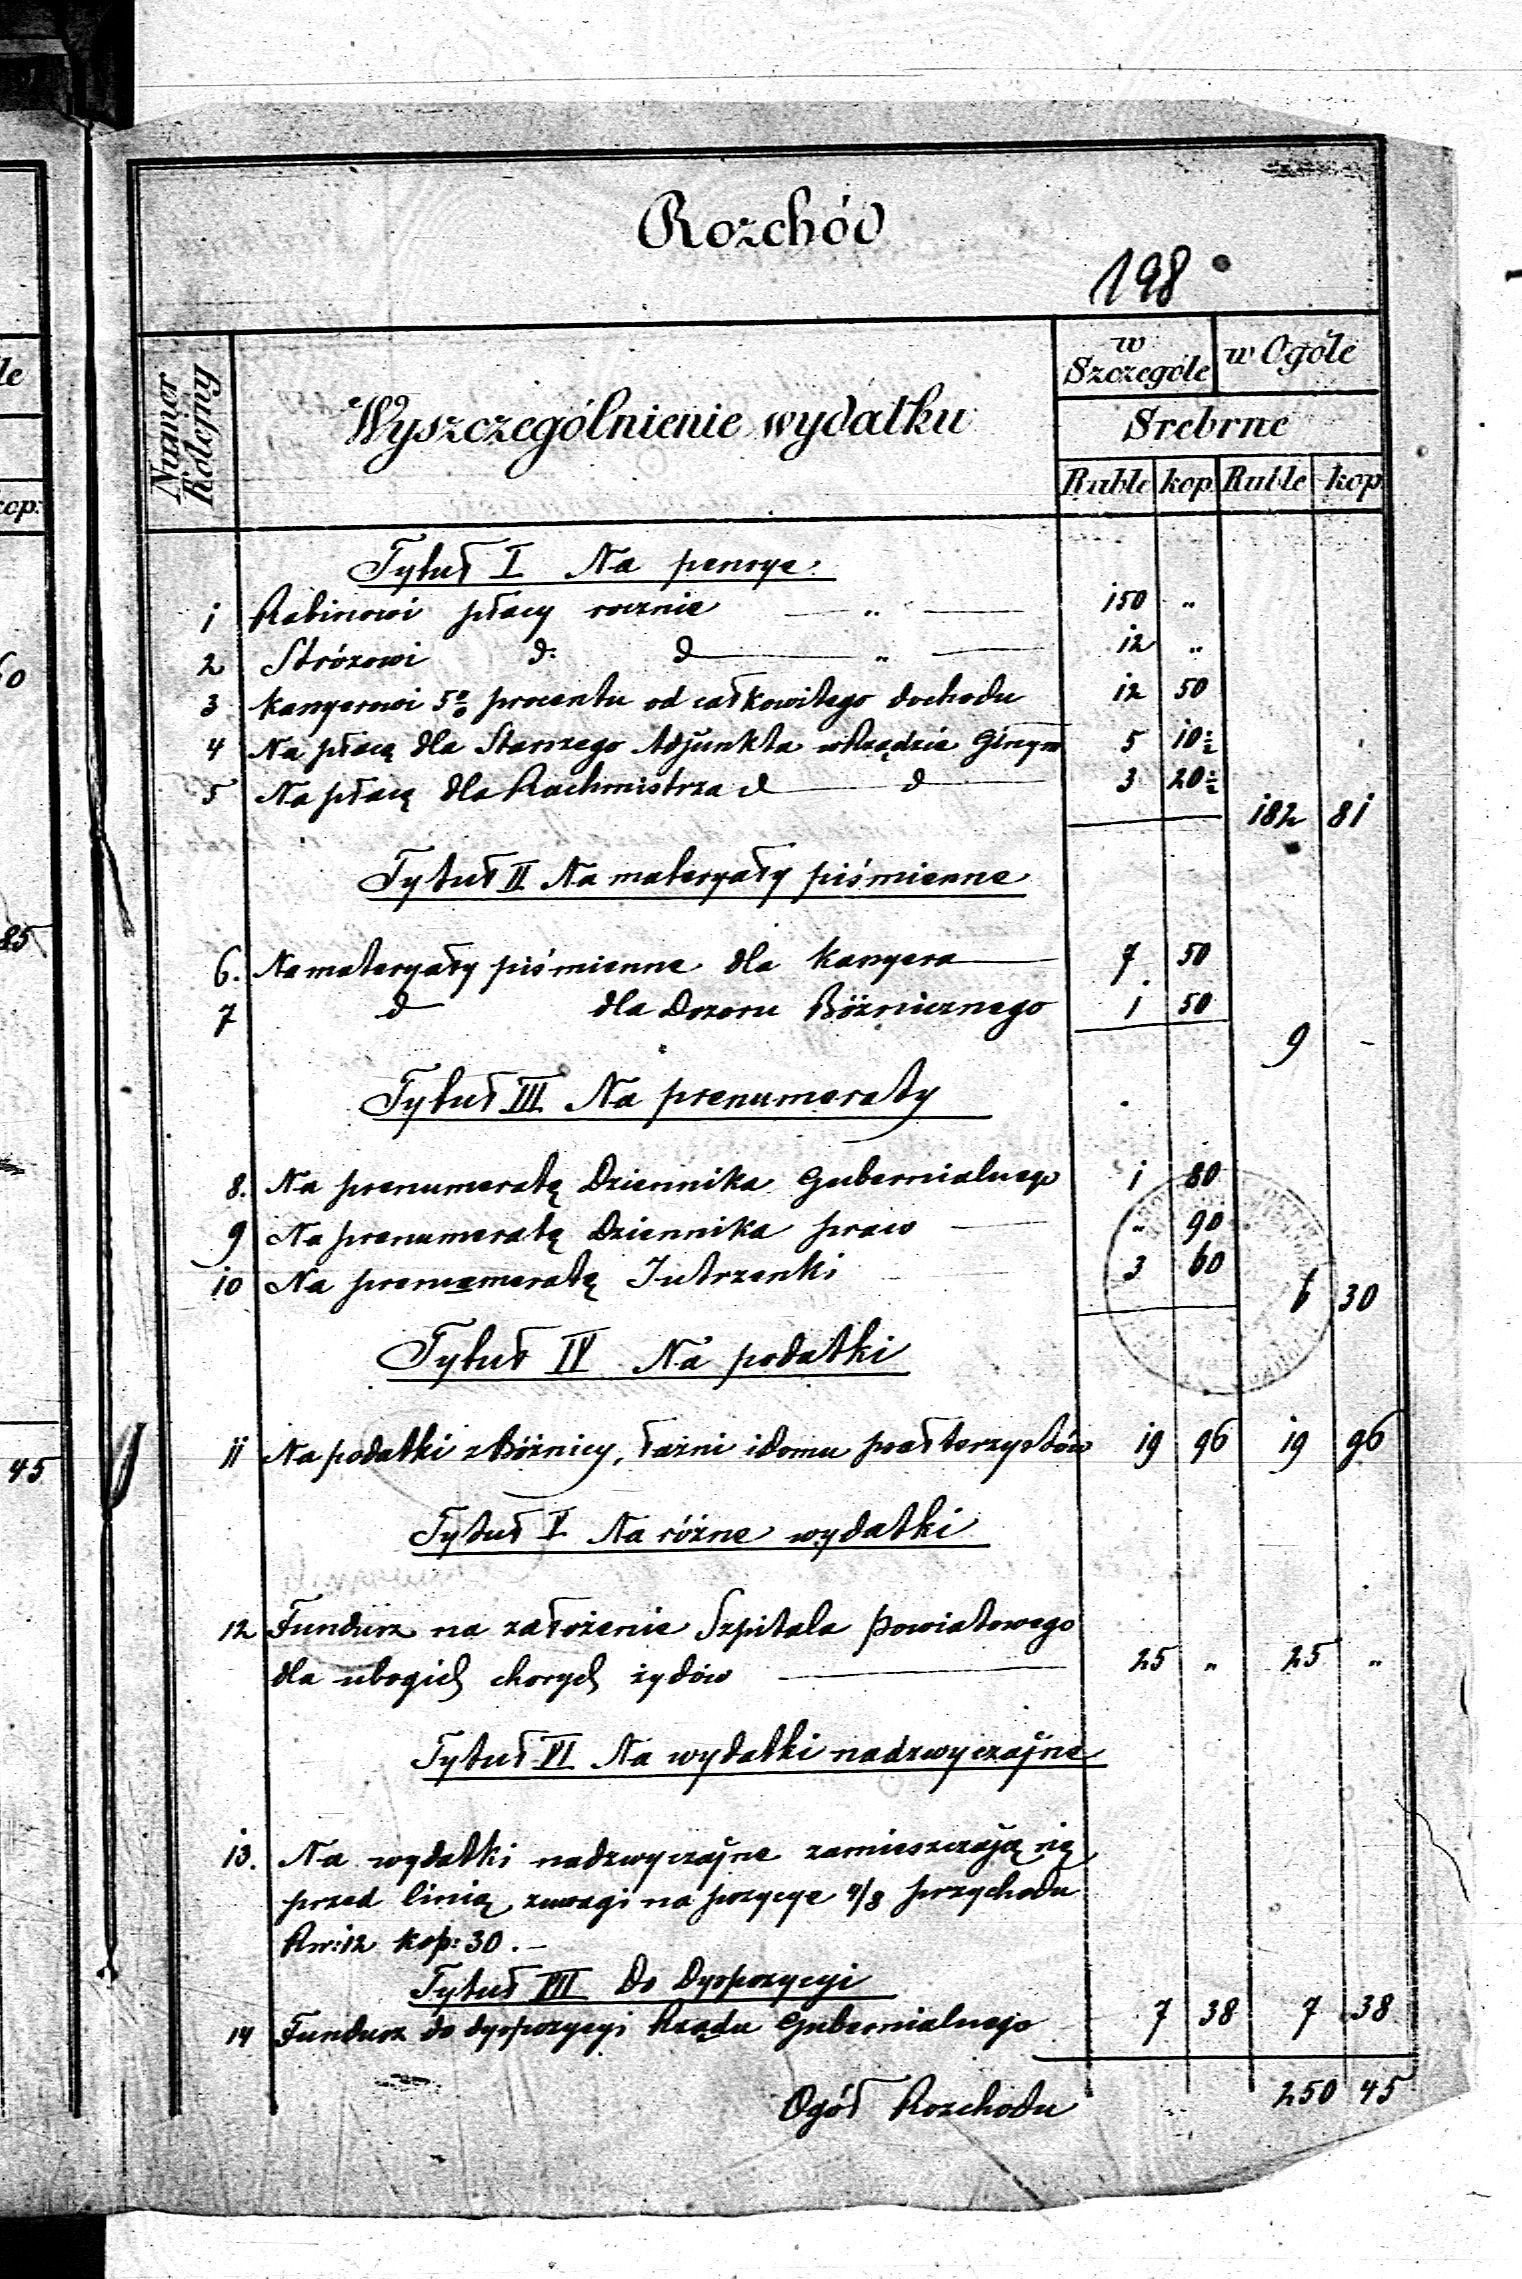 Rozchód
198
Numer Kolejny
Wyszczególnienie wydatku
w Szczególe
w Ogóle
Srebrne
Ruble kop Ruble kop
Tytuł I Na pensye
1 Rabinowi płacy rocznie — " — 150 "
2 Stróżowi d: d — " — 12 "
3 Kassyerowi 5% procentu od całkowitego dochodu 12 50
4 Na płacę dla Starszego Adjunkta w Rządzie 5 10½
5 Na płacę dla Rachmistrza d — d — 3 20½
182 81
Tytuł II Na materyały piśmienne
6. Na materyały piśmienne dla Kassyera — 7 50
7 d dla Dozoru Bóżnicznego 1 50
9 -
Tytuł III Na prenumeraty
8. Na prenumeratę Dziennika Gubernialnego 1 80
9 Na prenumeratę Dziennika praw — " 90
10 Na prenumeratę Jutrzenki 3 60
6 30
Tytuł IV Na podatki
11 Na podatki z Bóżnicy, łaźni i domu 19 96 19 96
Tytuł V Na różne wydatki
12 Fundusz na założenie Szpitala Powiatowego
dla ubogich chorych żydów — 25 " 25 "
Tytuł VI Na wydatki nadzwyczajne
13. Na wydatki nadzwyczajne zamieszczają się
przed linią z uwagi na pozycye 4/8 przychodu
Rs: 12 kop: 30. —
Tytuł VII Do Dyspozycyi
14 Fundusz do dyspozycyi Rządu Gubernialnego 7 38 7 38
Ogół Rozchodu 250 45